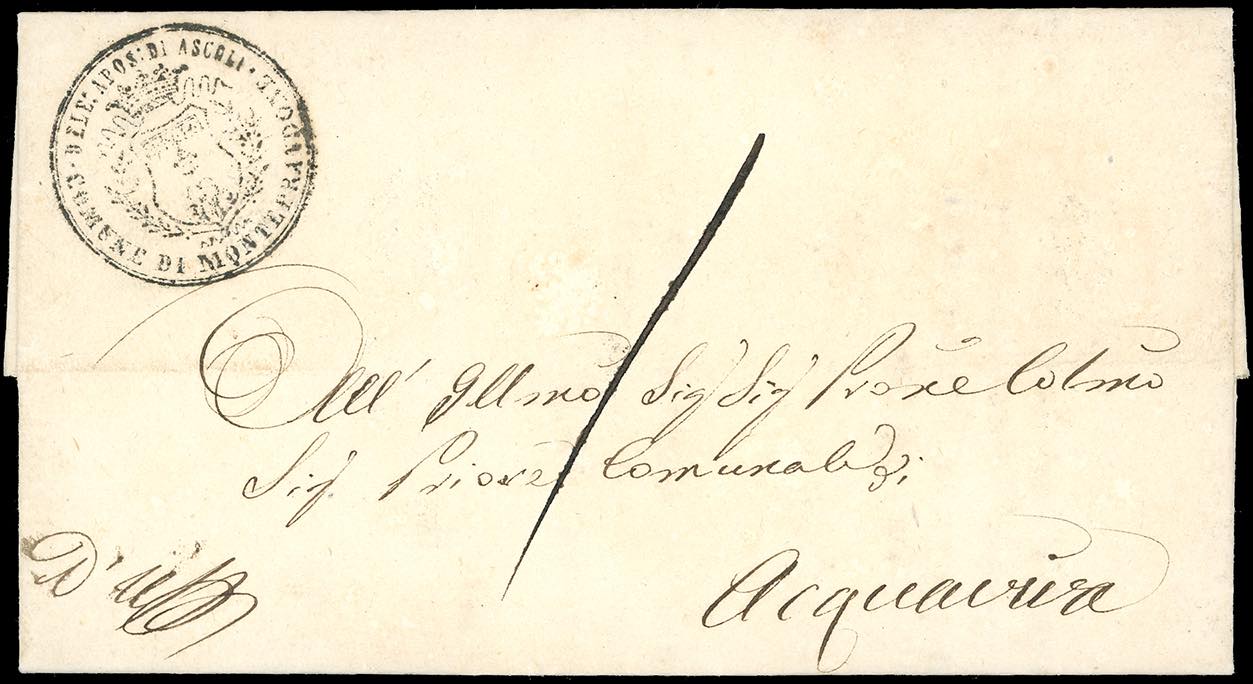 DELE: APOS: DI ASCOLI
COMUNE DI MONTEPRANDONE
All' Illmo Sig Sig Prone Colmo
Sig. Priore Comunale di
Acquaviva
D' uffo